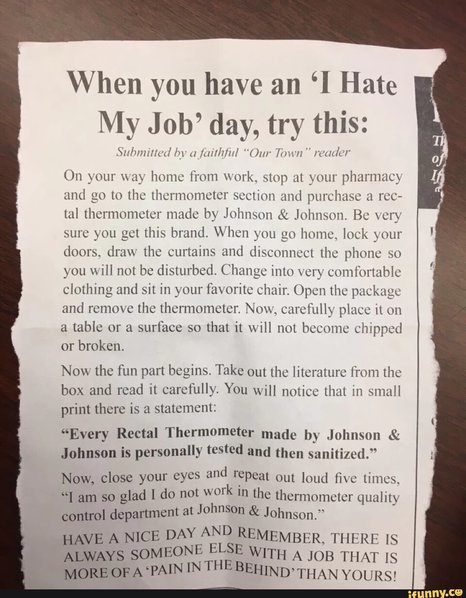 When you have an ‘I Hate
My Job’ day, try this:
Submitted by a faithful “Our Town” reader
On your way home from work, stop at your pharmacy
and go to the thermometer section and purchase a rec-
tal thermometer made by Johnson & Johnson. Be very
sure you get this brand. When you go home, lock your
doors, draw the curtains and disconnect the phone so
you will not be disturbed. Change into very comfortable
clothing and sit in your favorite chair. Open the package
and remove the thermometer. Now, carefully place it on
a table or a surface so that it will not become chipped
or broken.
Now the fun part begins. Take out the literature from the
box and read it carefully. You will notice that in small
print there is a statement:
“Every Rectal Thermometer made by Johnson &
Johnson is personally tested and then sanitized.”
Now, close your eyes and repeat out loud five times,
“I am so glad I do not work in the thermometer quality
control department at Johnson & Johnson.”
HAVE A NICE DAY AND REMEMBER, THERE IS
ALWAYS SOMEONE ELSE WITH A JOB THAT IS
MORE OF A ‘PAIN IN THE BEHIND’ THAN YOURS!
ifunny.co